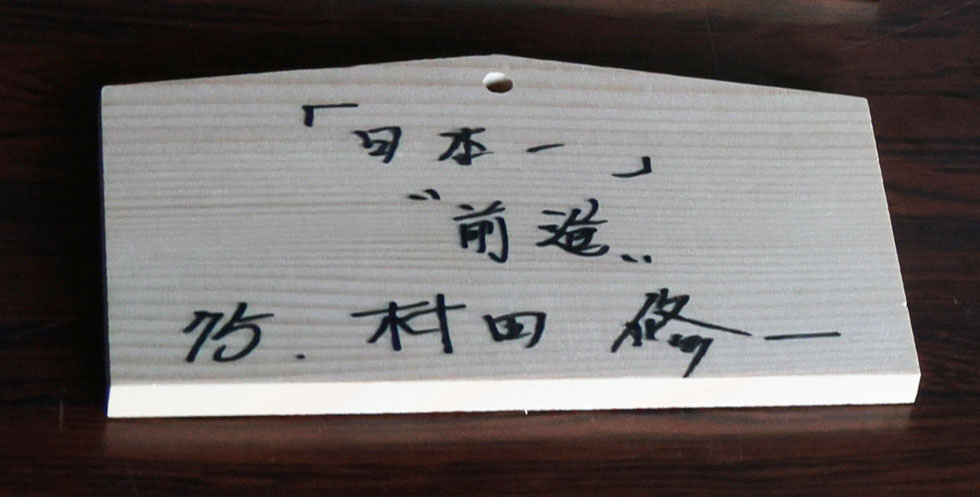 「日本一」
〝前進〟
75. 村田 修一